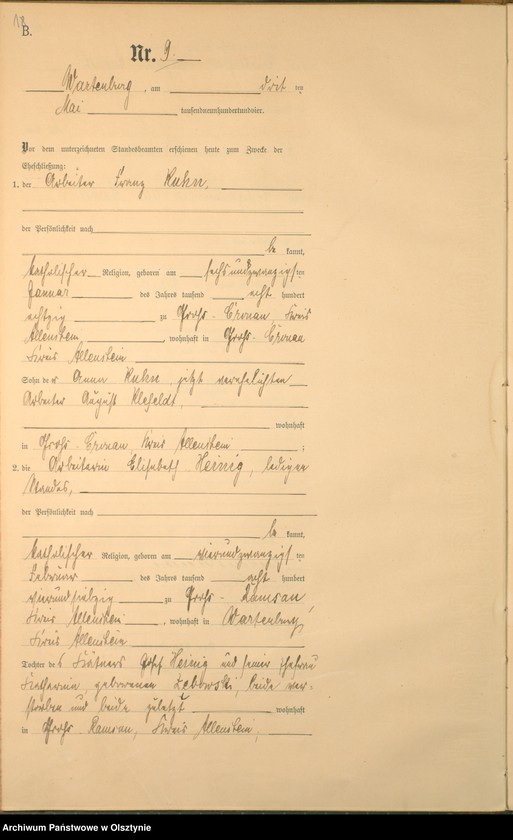 18
B.
Nr. 9.
Wartenburg, am drit ten
Mai tausendneunhundertundvier.
Vor dem unterzeichneten Standesbeamten erschienen heute zum Zwecke der
Eheschließung:
1. der Arbeiter Franz Kuhn,
der Persönlichkeit nach
be kannt,
katholischer Religion, geboren am sechsundzwanzigs ten
Januar des Jahres tausend acht hundert
achtzig zu Groß-Cronau, Kreis
Allenstein, wohnhaft in Groß-Cronau
Kreis Allenstein
Sohn der Anna Kuhn, jetzt verehelichten
Arbeiter August Klefeldt,
wohnhaft
in Groß-Cronau Kreis Allenstein;
2. die Arbeiterin Elisabeth Heinig, ledigen
Standes,
der Persönlichkeit nach
be kannt,
katholischer Religion, geboren am vierundzwanzigs ten
Februar des Jahres tausend acht hundert
vierundsiebzig zu Groß-Ramsau,
Kreis Allenstein, wohnhaft in Wartenburg,
Kreis Allenstein
Tochter des Kätners Josef Heinig und seiner Ehefrau
Katharina geborenen Lebowski, beide ver-
storben und beide zuletzt wohnhaft
in Groß-Ramsau, Kreis Allenstein,
Archiwum Państwowe w Olsztynie